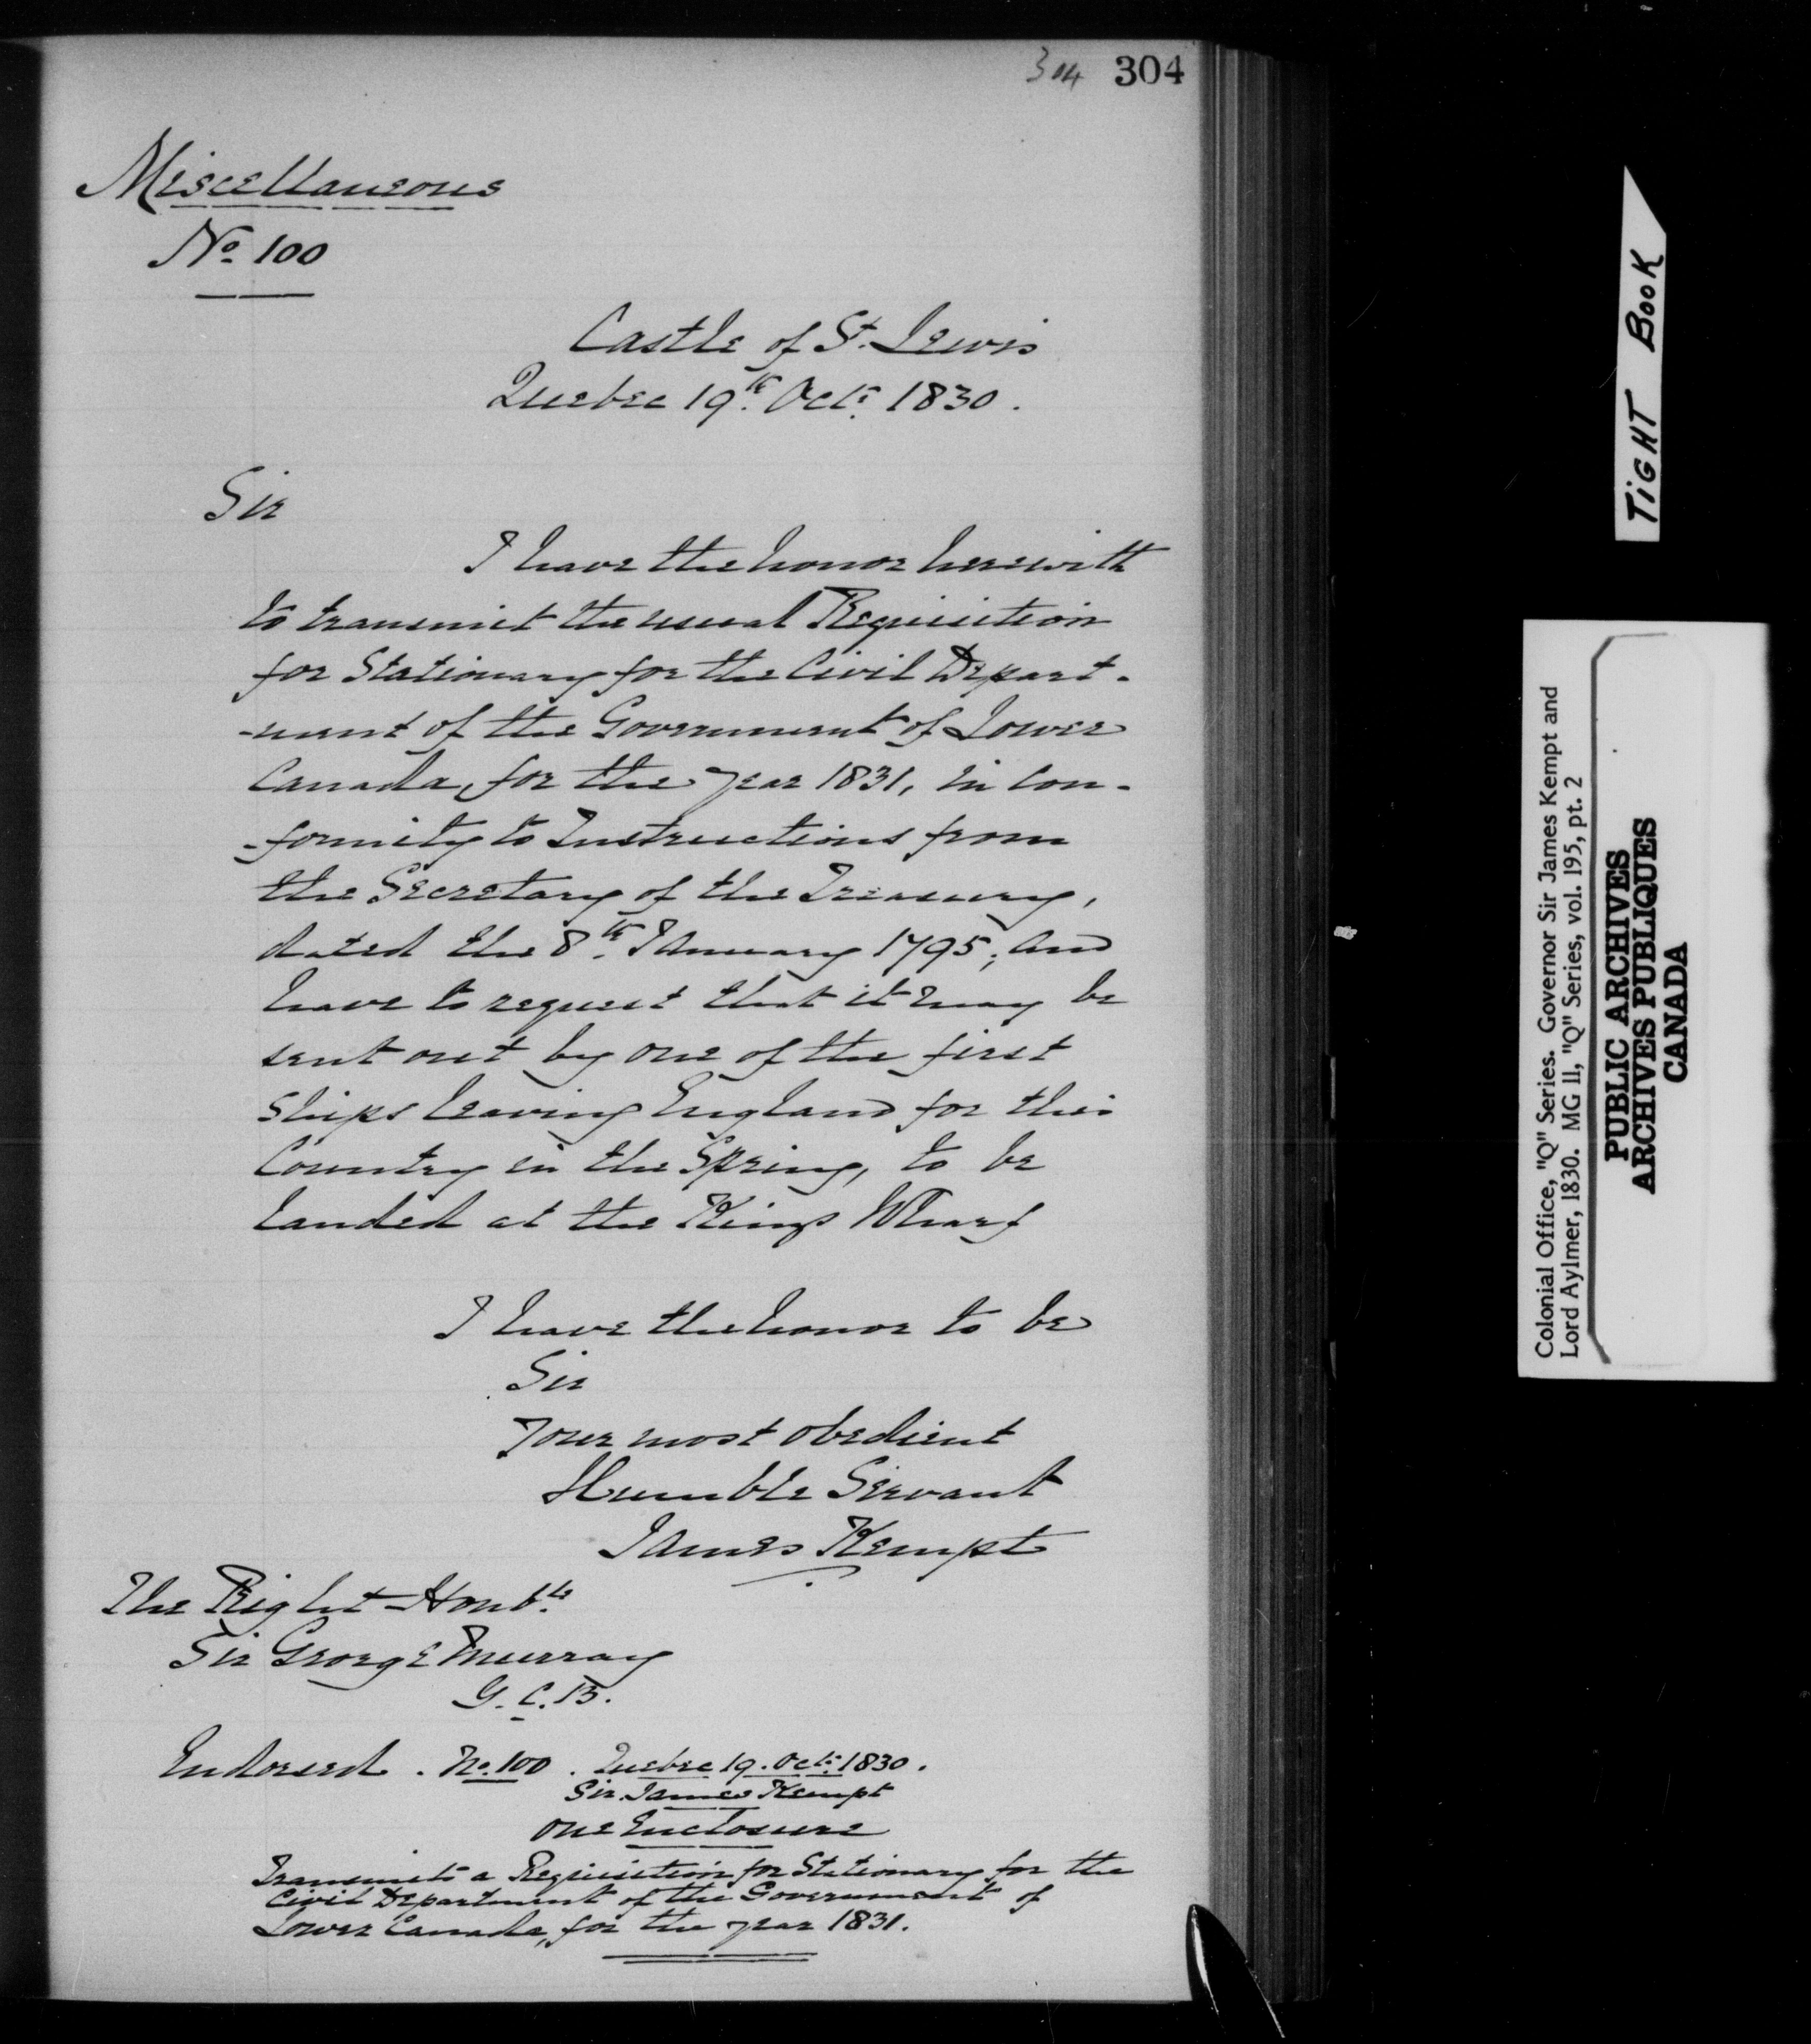 304 304
Miscellaneous
No. 100
Castle of St. Lewis
Quebec 19th. Oct. 1830.
Sir
I have the honor herewith
to transmit the usual Requisition
for Stationary for the Civil Depart-
-ment of the Government of Lower
Canada, for the year 1831, in Con-
-formity to Instructions from
the Secretary of the Treasury,
dated the 8th. January 1795; and
have to request that it may be
sent out by one of the first
Ships leaving England for this
Country in the Spring, to be
landed at the Kings Wharf
I have the honor to be
Sir
Your most obedient
Humble Servant
James Kempt
The Right Honble.
Sir George Murray
G.C.B.
Endorsed. No. 100. Quebec 19. Oct. 1830.
Sir James Kempt
One Enclosure
Transmits a Requisition for Stationary for the
Civil Department of the Government of
Lower Canada, for the year 1831.
TIGHT BOOK
Colonial Office, "Q" Series. Governor Sir James Kempt and
Lord Aylmer, 1830. MG 11, "Q" Series, vol. 195, pt. 2
PUBLIC ARCHIVES
ARCHIVES PUBLIQUES
CANADA